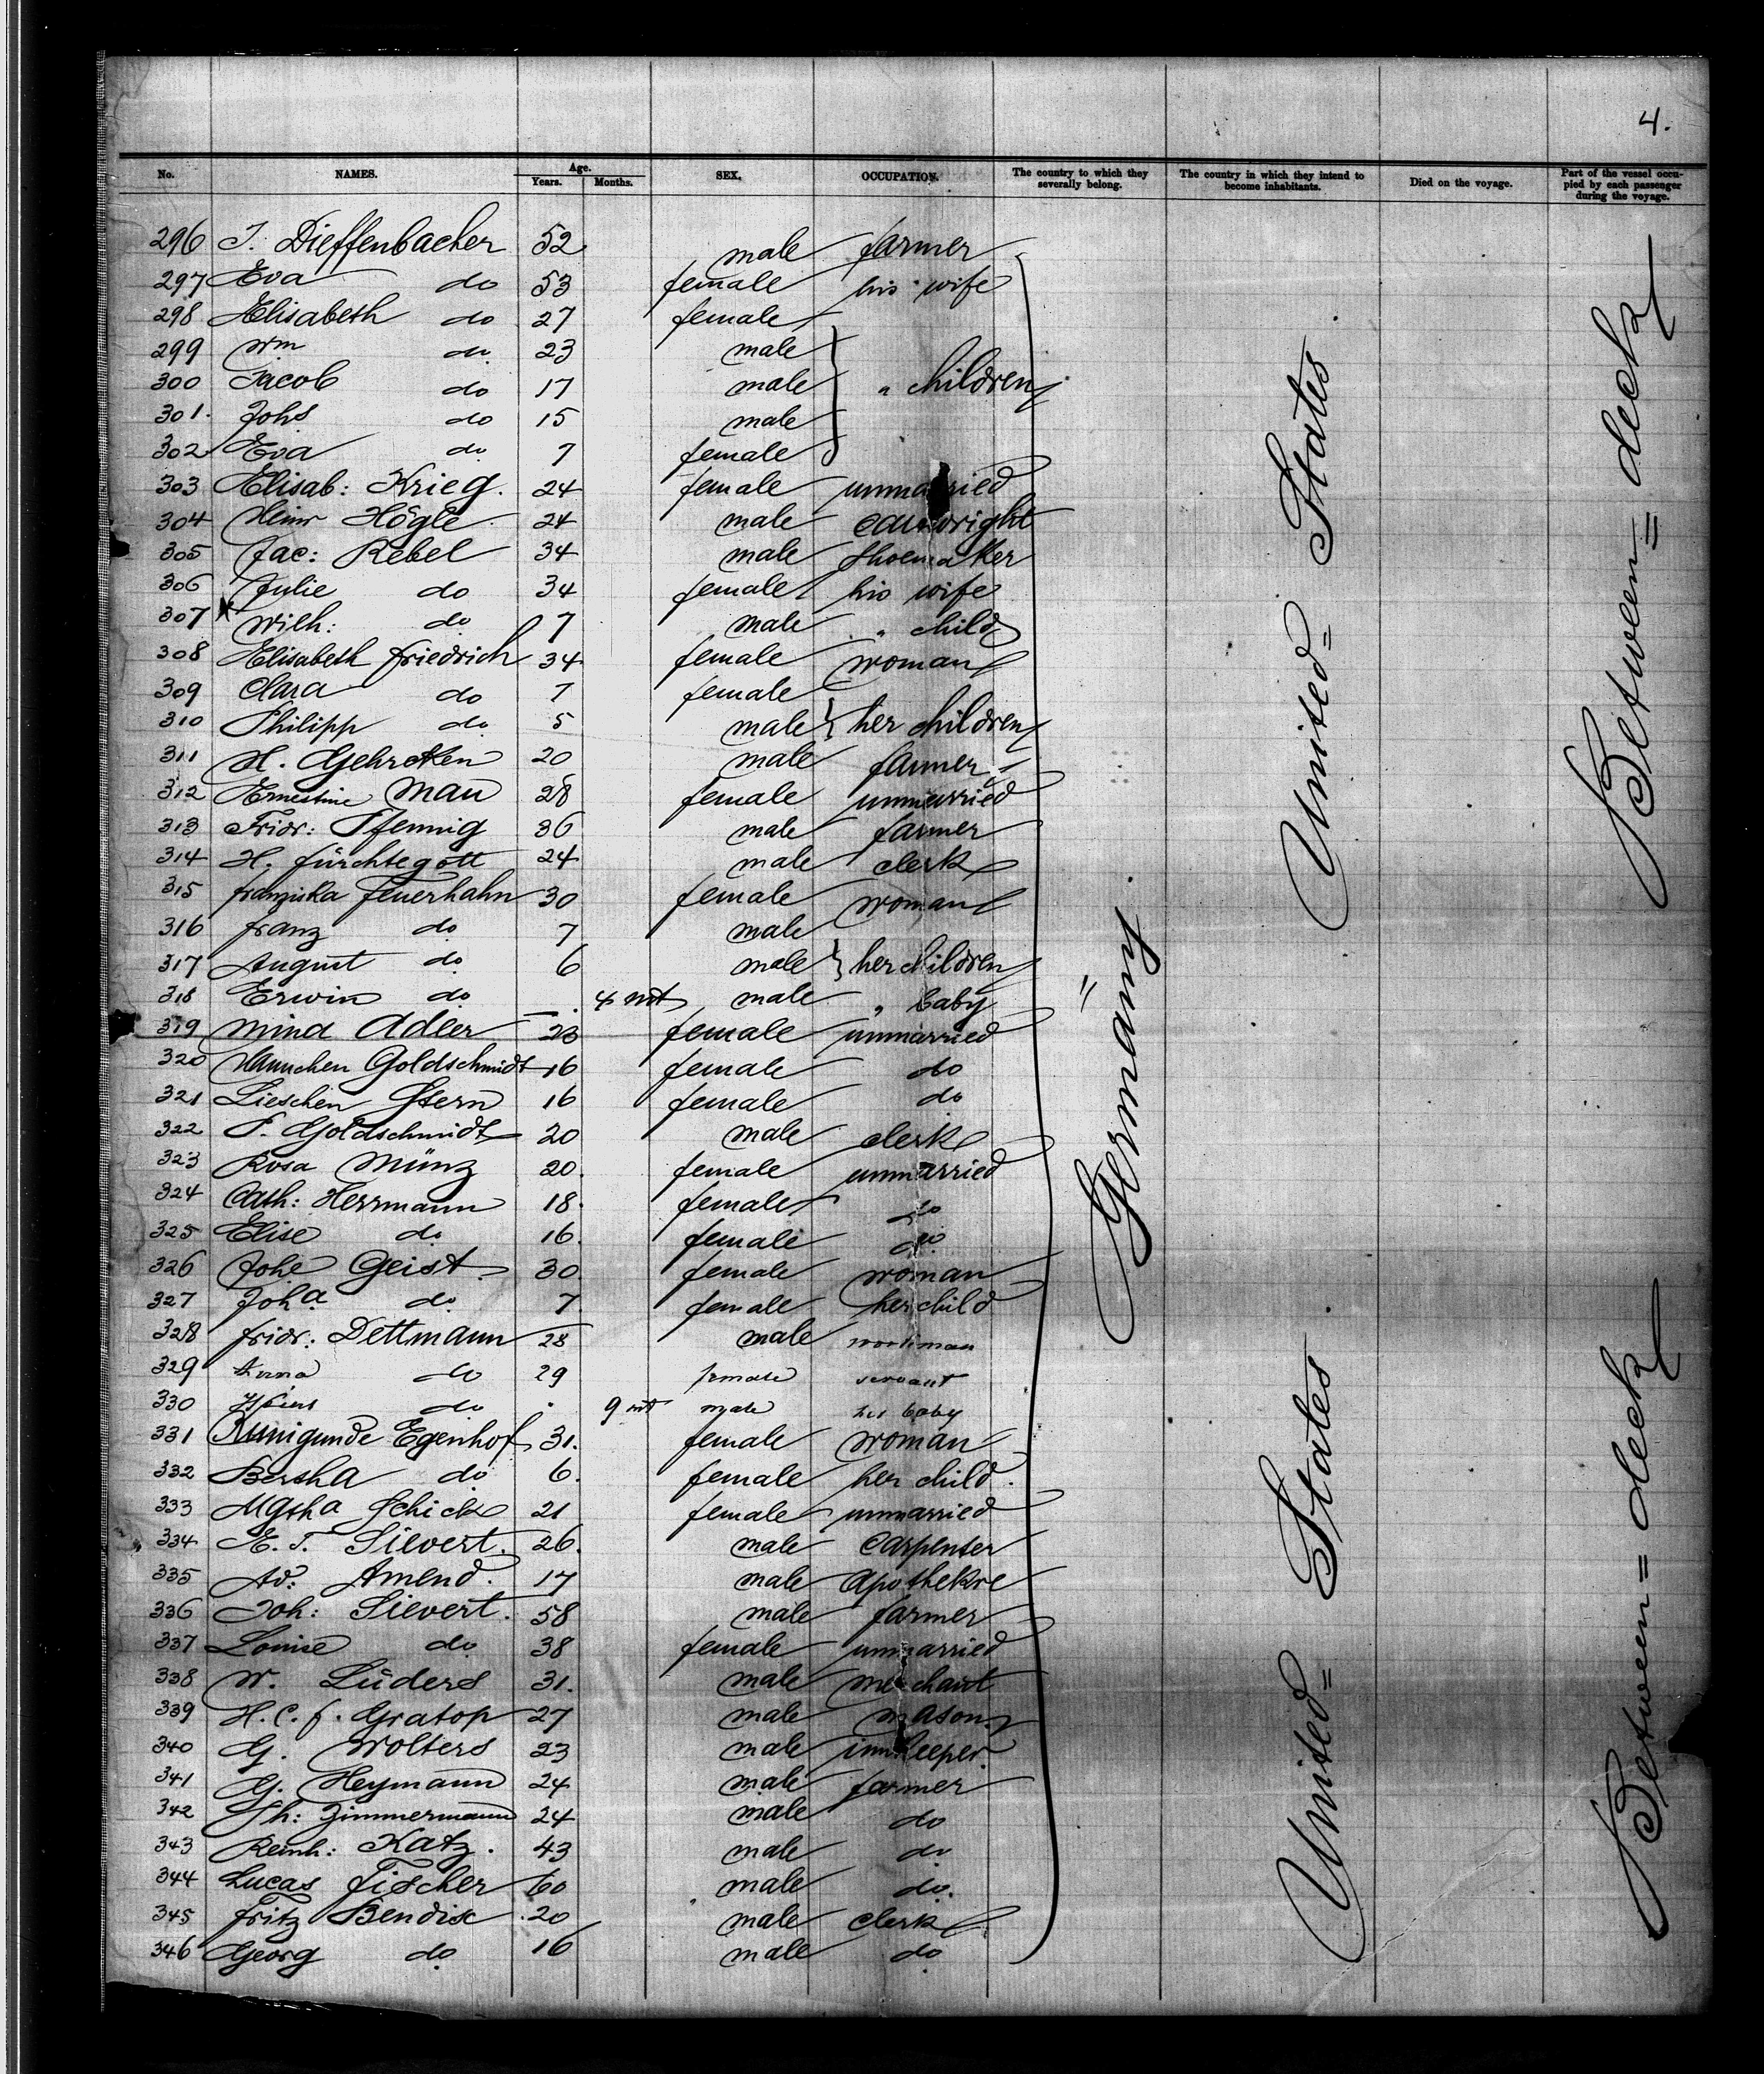 4.
No. NAMES. Age. Years. Months. SEX. OCCUPATION. The country to which they severally belong. The country in which they intend to become inhabitants. Died on the voyage. Part of the vessel occupied by each passenger during the voyage.
296 J. Dieffenbacher 52 male farmer
297 Eva do 53 female his wife
298 Elisabeth do 27 female
299 Wm do 23 male
300 Jacob do 17 male " children
301. Johs do 15 male
302 Eva do 7 female
303 Elisab: Krieg. 24 female unmarried
304 Heinr Högle 24 male
305 Jac: Rebel 34 male shoemaker
306 Julie do 34 female his wife
307 Wilh: do 7 male " child
308 Elisabeth Friedrich 34 female woman
309 Clara do 7 female
310 Philipp do 5 male her children
311 H. 20 male farmer
312 Ernestine Mau 28 female unmarried
313 Fridr: Pfennig 36 male farmer
314 H. Fürchtegott 24 male clerk
315 Franziska Feuerhahn 30 female woman
316 Franz do 7 male
317 August do 6 male her children
318 Erwin do 4 mt male " baby
319 Mina Adler 23 female unmarried
320 Hannchen Goldschmidt 16 female do
321 Lieschen Stern 16 female do
322 Goldschmidt 20 male clerk
323 Rosa Münz 20. female unmarried
324 Cath: Herrmann 18. female do
325 Elise do 16. female do
326 Johe Geist 30. female woman
327 Joha do 7. female her child
328 Fridr: Dettmann 28 male workman
329 Anna do 29 female servant
330 do 9 mt male her baby
331 Kunigunde Egenhof 31. female woman
332 Bertha do 6. female her child.
333 Mgtha Schick 21 female unmarried
334 E. T. Sievert. 26. male carpenter
335 Ad: Amend. 17 male apothekre
336 Joh: Sievert. 58 male farmer
337 Louise do 38 female unmarried
338 W. Lüders 31. male merchant
339 H. C. F. Gratop 27 male mason
340 G. Wolters 23 male innkeeper
341 G. Heymann 24 male farmer
342 Th: Zimmermann 24 male do
343 Reinh: Katz. 43 male do
344 Lucas Fischer 60 male do.
345 Fritz Bendix 20 male clerk
346 Georg do 16 male do
Germany
United= States
United= States
Between= deck
Between= deck